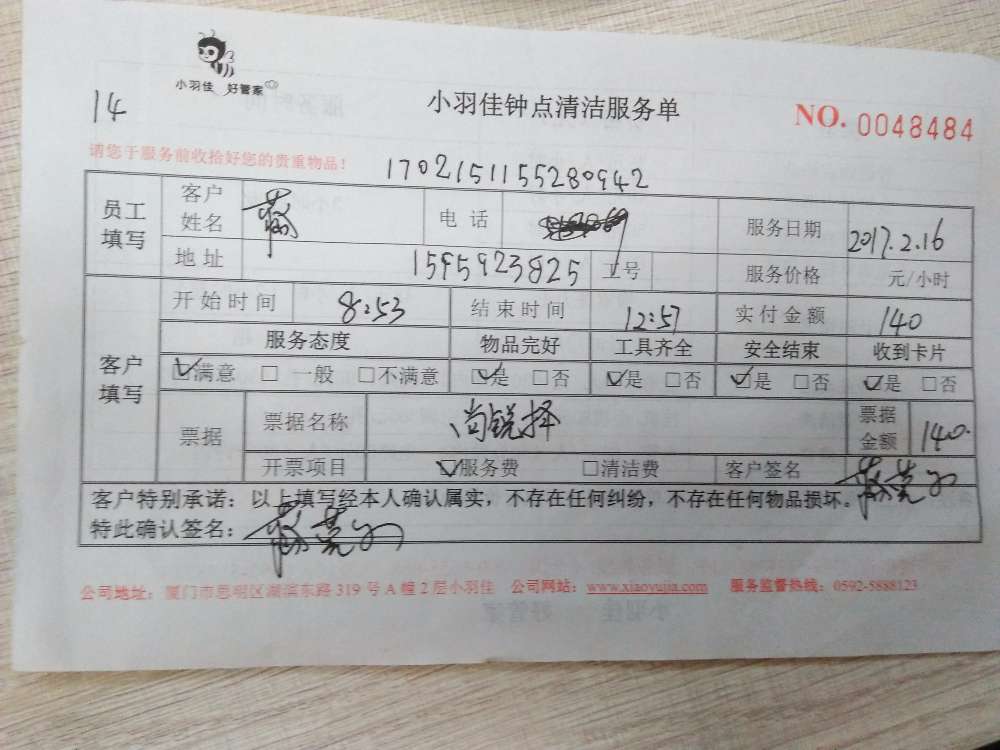 小羽佳 好管家
14
小羽佳钟点清洁服务单
NO. 0048484
请您于服务前收拾好您的贵重物品！
1702151155280942
员工填写 客户姓名 电话 服务日期 2017.2.16
地址 15959923825 工号 服务价格 元/小时
客户填写 开始时间 8:53 结束时间 12:57 实付金额 140
服务态度 物品完好 工具齐全 安全结束 收到卡片
☑满意 □一般 □不满意 ☑是 □否 ☑是 □否 ☑是 □否 ☑是 □否
票据 票据名称 尚锐择 票据金额 140.
开票项目 ☑服务费 □清洁费 客户签名
客户特别承诺：以上填写经本人确认属实，不存在任何纠纷，不存在任何物品损坏。
特此确认签名：
公司地址：厦门市思明区湖滨东路319号A幢2层小羽佳 公司网站：www.xiaoyujia.com 服务监督热线：0592-5888123